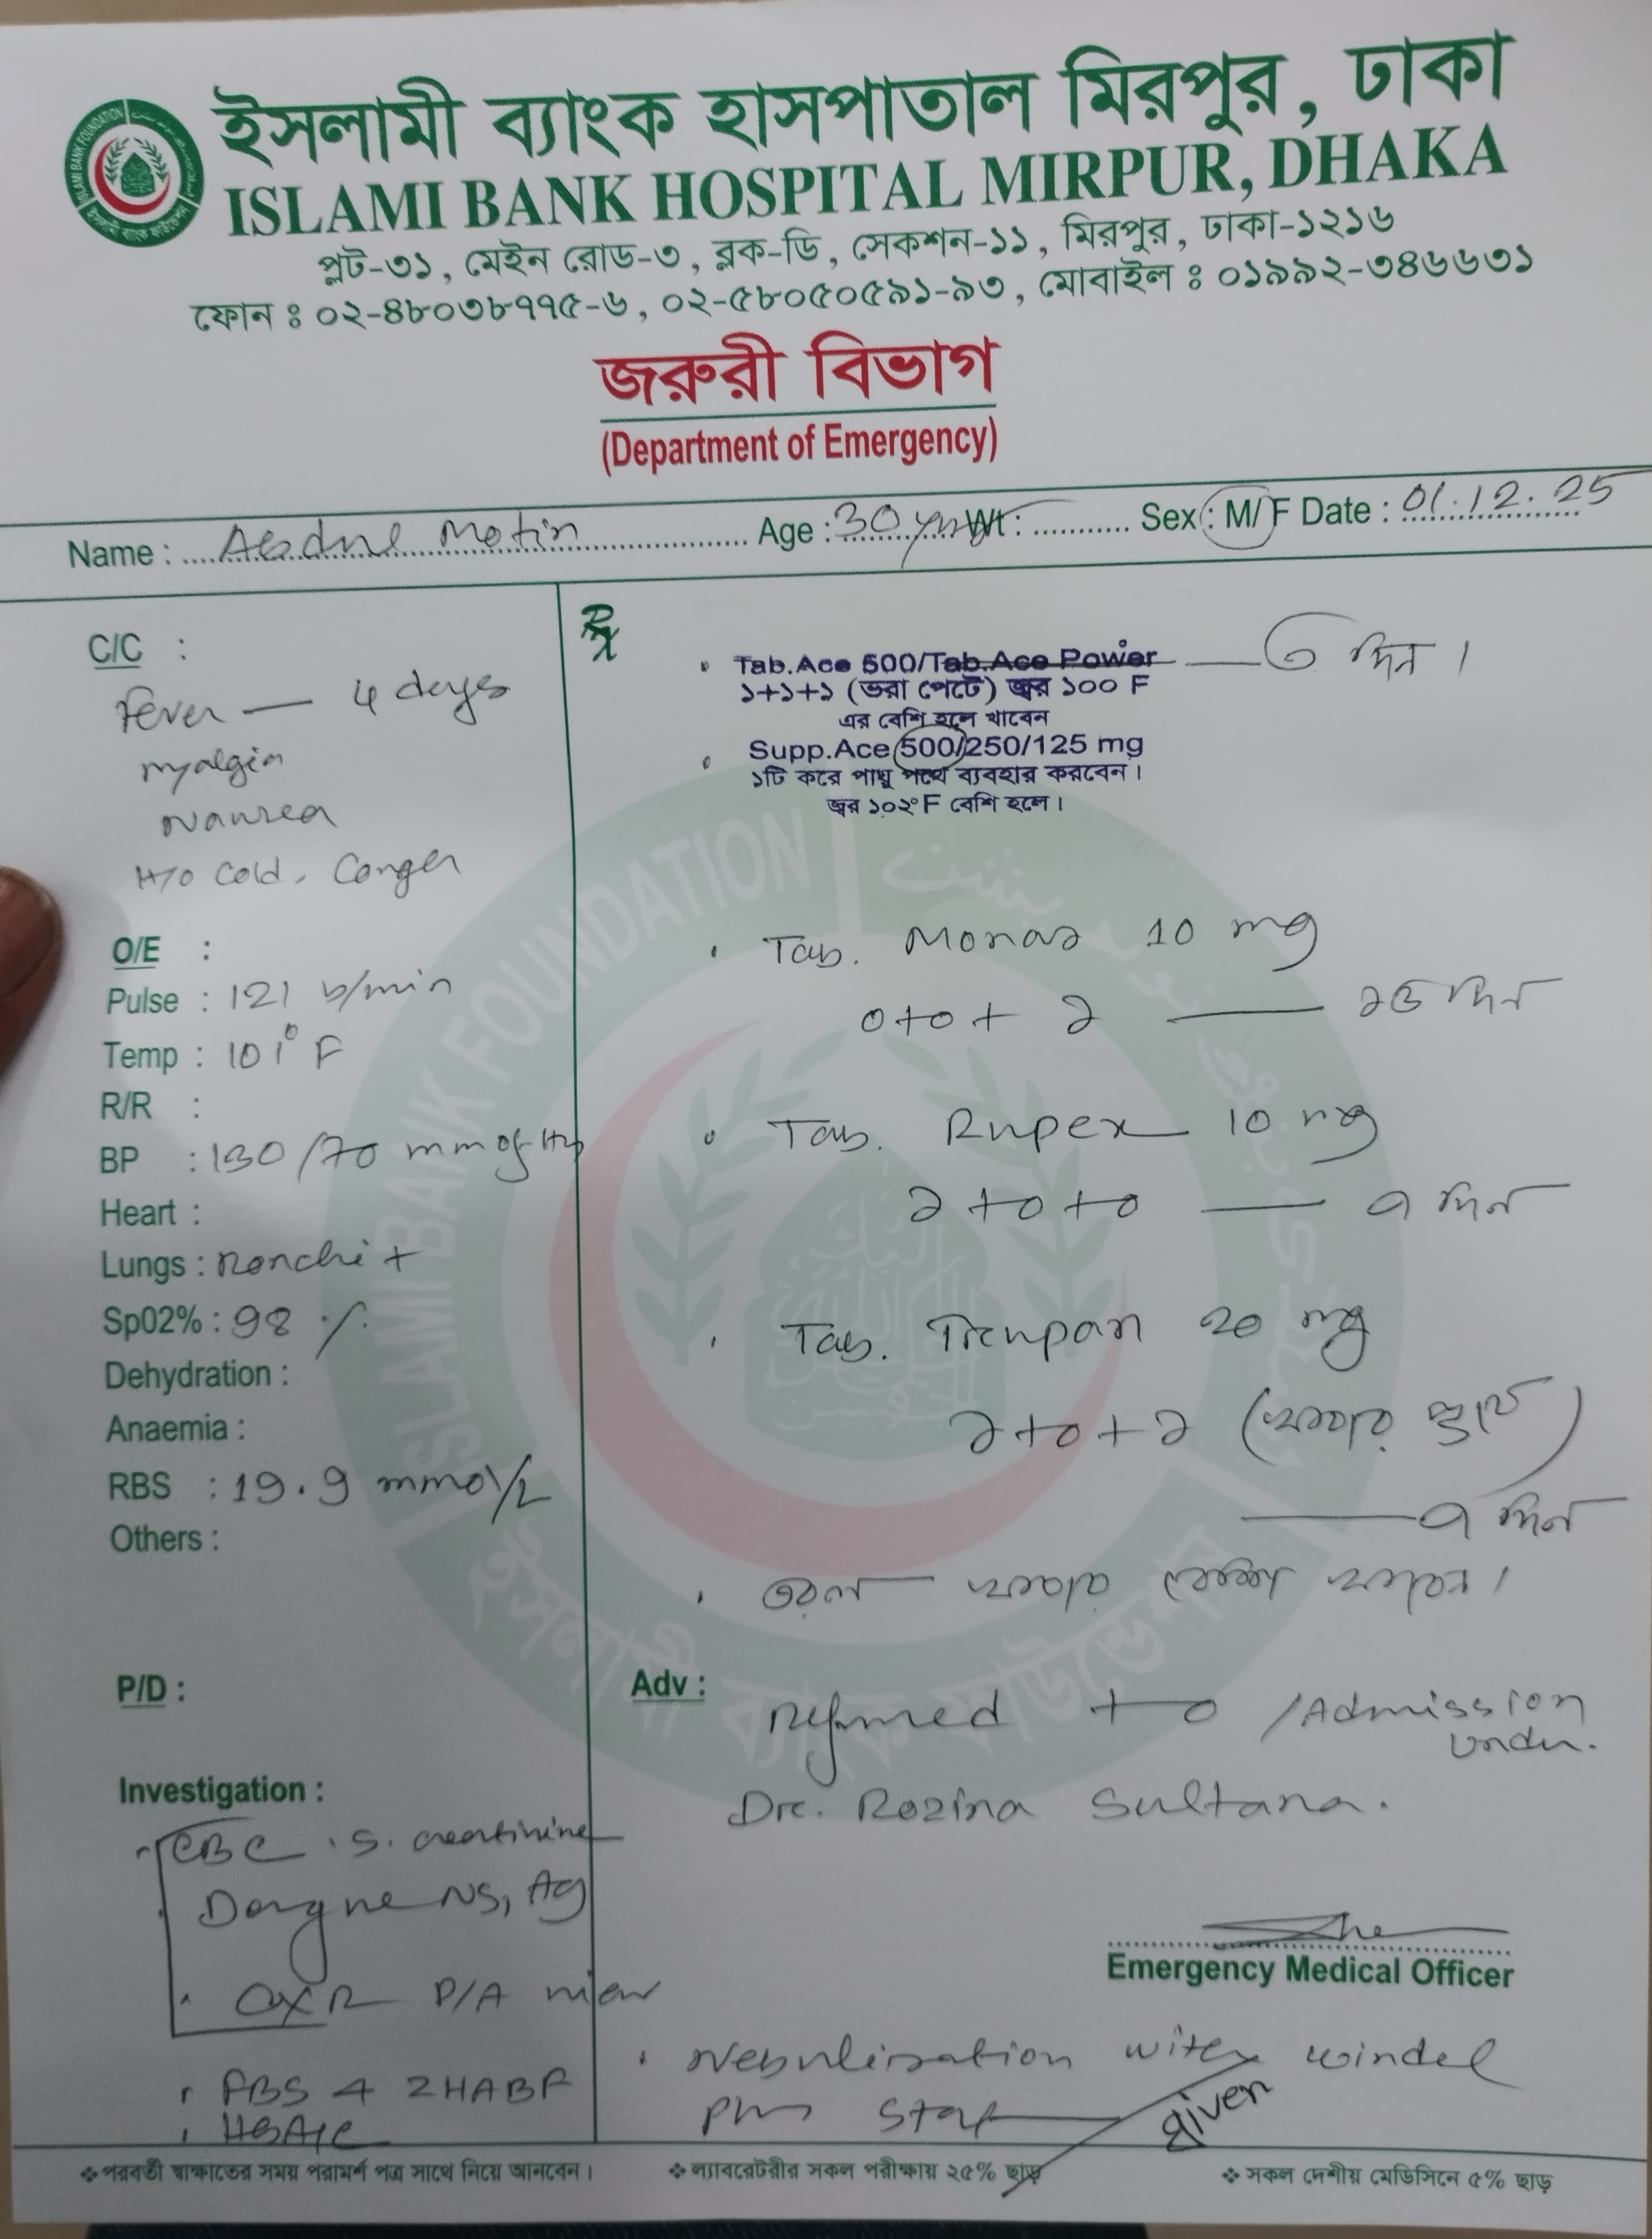 ইসলামী ব্যাংক হাসপাতাল মিরপুর, ঢাকা
ISLAMI BANK HOSPITAL MIRPUR, DHAKA
প্লট-৩১, মেইন রোড-৩, ব্লক-ডি, সেকশন-১১, মিরপুর, ঢাকা-১২১৬
ফোন ঃ ০২-৪৮০৩৮৭৭৫-৬, ০২-৫৮০৫০৫৯১-৯৩, মোবাইল ঃ ০১৯৯২-৩৪৬৬৩১
জরুরী বিভাগ
(Department of Emergency)
Name : Abdul Motin Age : 30 yrs Wt : Sex : M/F Date : 01.12.25
C/C :
Fever — 4 days
myalgia
Nausea
H/O cold,
O/E :
Pulse : 121 b/min
Temp : 101° F
R/R :
BP : 130/70 mm of Hg
Heart :
Lungs : Ronchi +
Sp02% : 98 %
Dehydration :
Anaemia :
RBS : 19.9 mmol/L
Others :
P/D :
Investigation :
CBC . S. creatinine
Dengue NS1 Ag
CXR P/A view
FBS & 2HABF
HbA1c
Rx
Tab.Ace 500/Tab.Ace Power — ৩ দিন।
১+১+১ (ভরা পেটে) জ্বর ১০০ F
এর বেশি হলে খাবেন
Supp.Ace 500/250/125 mg
১টি করে পায়ু পথে ব্যবহার করবেন।
জ্বর ১০২°F বেশি হলে।
Tab. Monas 10 mg
০+০+১ — ১৫ দিন
Tab. Rupex 10 mg
১+০+০ — ৭ দিন
Tab. Trupan 20 mg
১+০+১ (খাবার পূর্বে)
— ৭ দিন
তরল খাবার বেশি খাবেন।
Adv :
Referred to /Admission
under.
Dr. Rozina Sultana.
Emergency Medical Officer
Nebulization with windel
plus stat
given
❖ পরবর্তী স্বাক্ষাতের সময় পরামর্শ পত্র সাথে নিয়ে আনবেন। ❖ ল্যাবরেটরীর সকল পরীক্ষায় ২৫% ছাড় ❖ সকল দেশীয় মেডিসিনে ৫% ছাড়
ISLAMI BANK FOUNDATION
ইসলামী ব্যাংক ফাউন্ডেশন